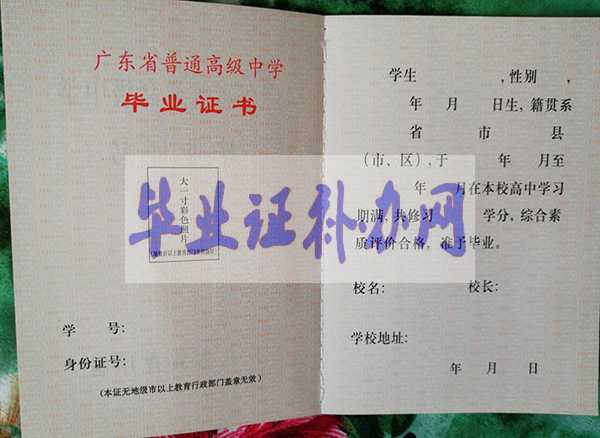 广东省普通高级中学
毕业证书
大一寸彩色照片
学 号:
身份证号:
(本证无地级市以上教育行政部门盖章无效)
学生 ,性别 ,
年 月 日生,籍贯系
省 市 县
(市、区),于 年 月至
年 月在本校高中学习
期满,共修习 学分,综合素
质评价合格,准予毕业。
校名: 校长:
学校地址:
年 月 日
毕业证补办网